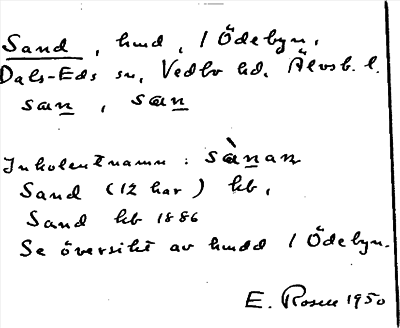 Sand, hmd, / Ödebyn,
Dals-Eds sn, Vedbo hd, Älvsb. l.
san, san
Inkolentnamn: sànan
Sand (12 har) kb,
Sand kb 1886
Se översikt av hmdd / Ödebyn.
E. Rosen 1950